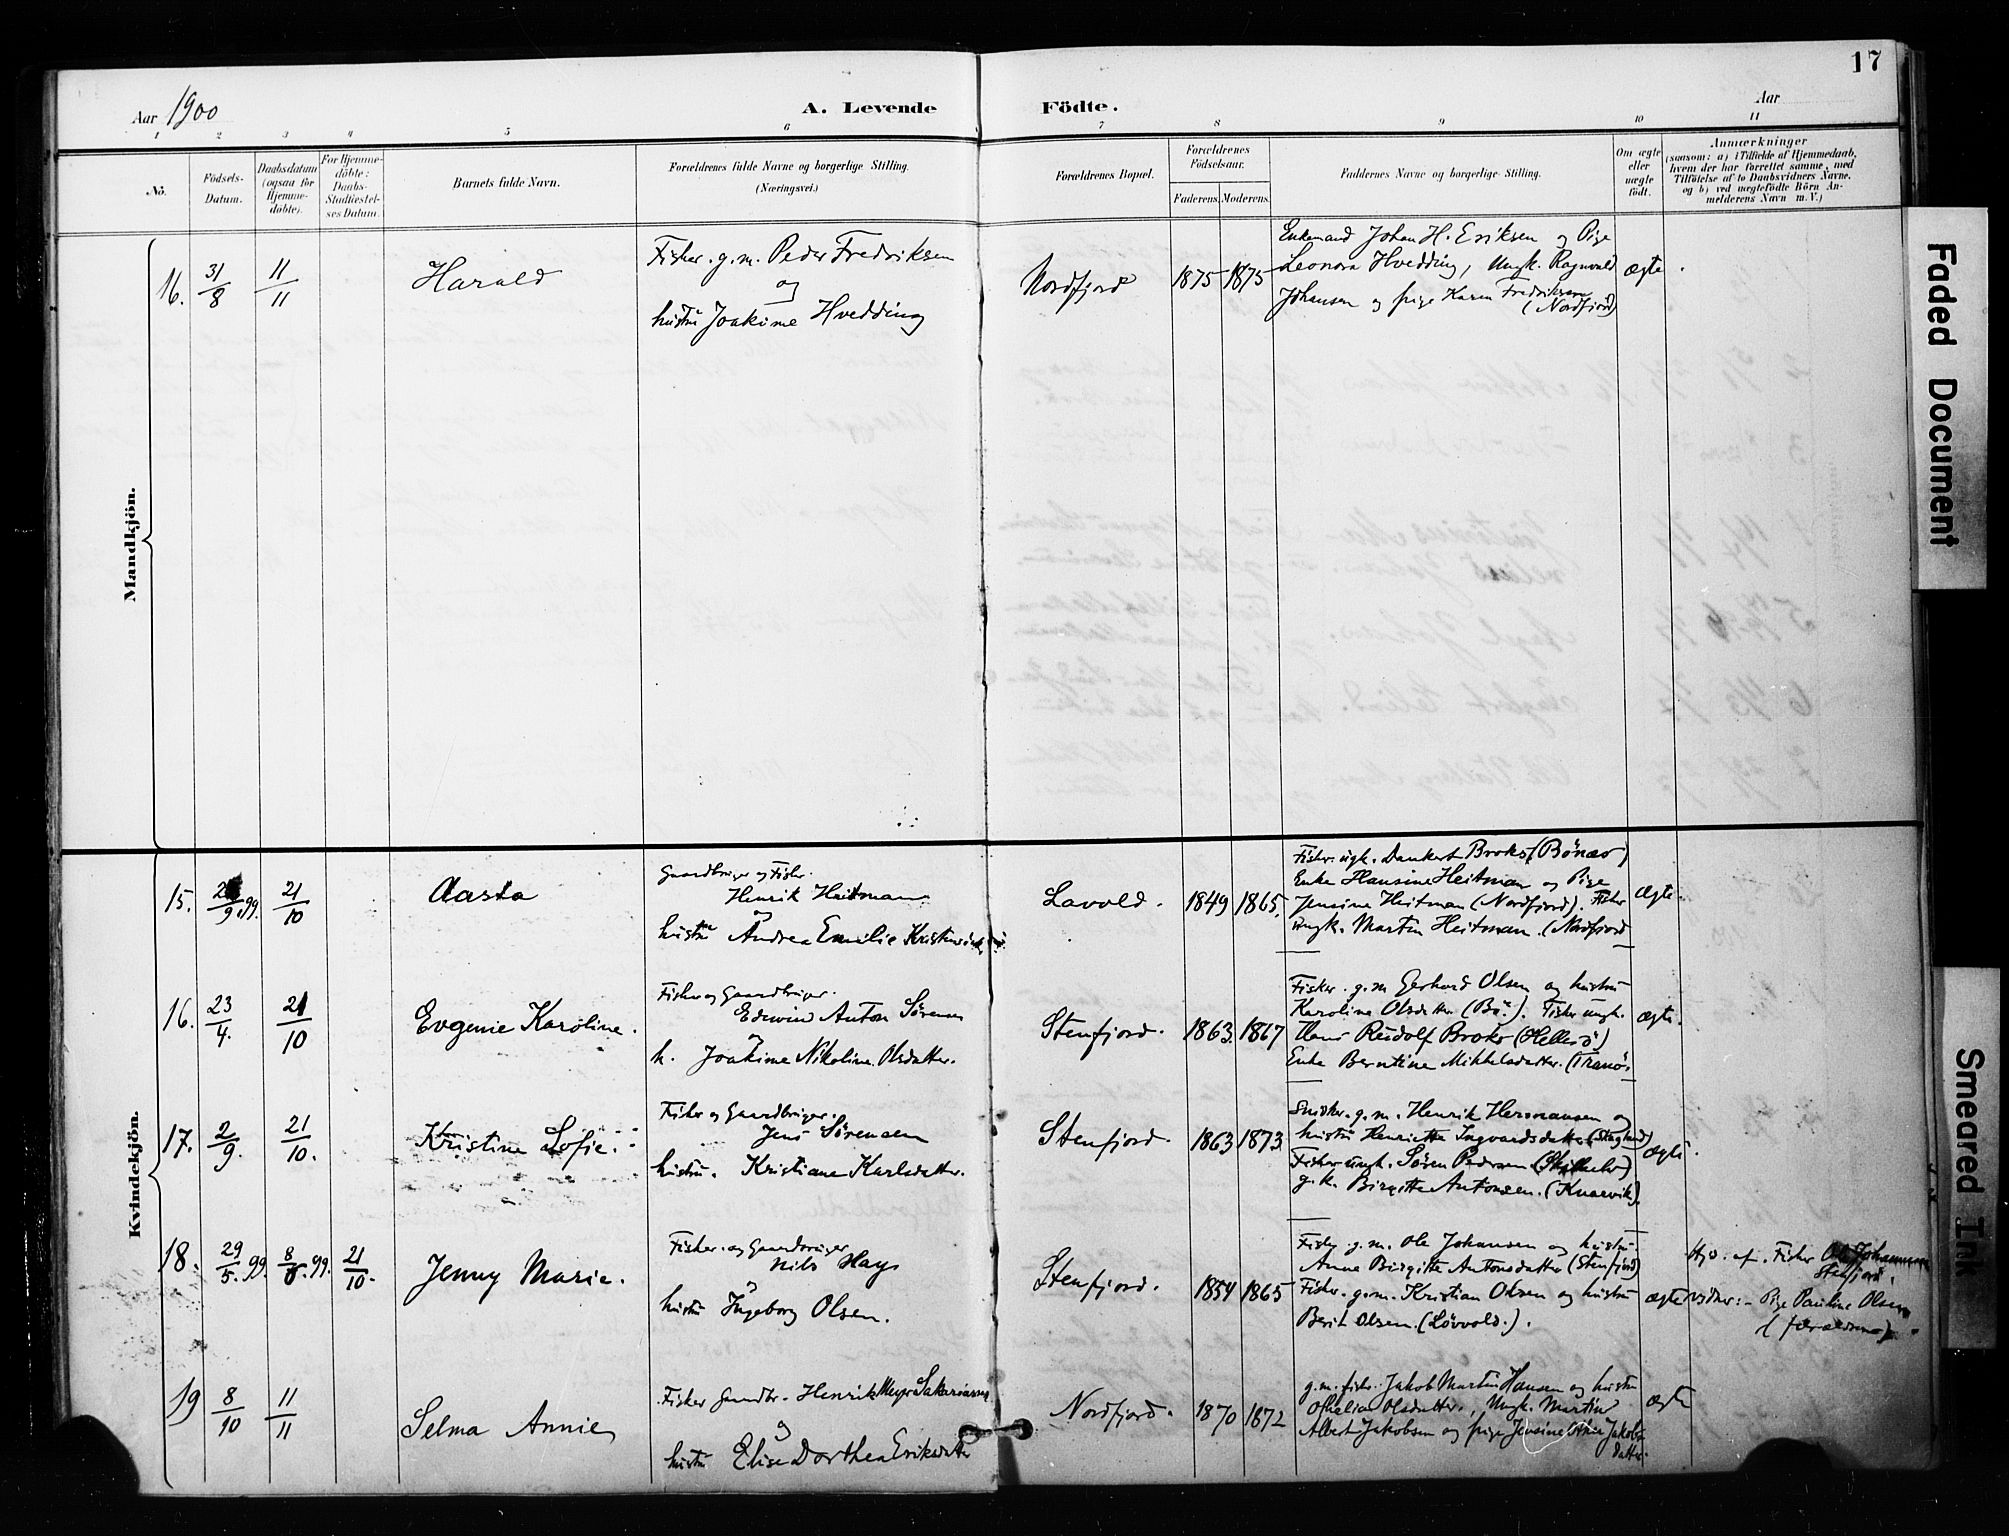 17
Aar 1900
A. Levende Födte.
Aar
1 2 3 4 5 6 7 8 9 10 11
No.
Födsels-Datum.
Daabsdatum (ogsaa for Hjemme-döbte).
For Hjemme-döbte: Daabs-Stadfæstel-ses Datum.
Barnets fulde Navn.
Forældrenes fulde Navne og borgerlige Stilling.
(Næringsvei.)
Forældrenes Bopæl.
Forældrenes Födselsaar.
Faderens. Moderens.
Faddernes Navne og borgerlige Stilling.
Om ægte eller uægte födt.
Anmærkninger
(saasom: a) i Tilfælde af Hjemmedaab,
hvem der har forrettet samme, med
Tilföielse af to Daabsvidners Navne,
og b) ved uægtefödte Börn An-
melderens Navn m. V.)
Mandkjön.
16. 31/8 11/11 Harald
Fisker. g. m. Peder Fredriksen
og
hustru Joakime Hvedding
Nordfjord 1875 1875
Enkemand Johan H. Eriksen og Pige
Leonora Hvedding, Ungk. Ragnvald
Johansen og pige Karen Fredriksen
(Nordfjord)
ægte
Kvindekjön.
15. 9. 99. 21/10 Aasta
Gaardbruger og Fisker.
Henrik Heitman
og
hustru Andrea Emilie
Lavold. 1849 1865.
Fisker. ugk. Dankert Broks (Bönæs)
Enke Hansine Heitman og Pige
Jensine Heitman (Nordfjord). Fisker
ungk. Martin Heitman. (Nordfjord
Ægte.
16. 23/4. 21/10 Evgenie Karoline.
Fisker og Gaardbruger.
Edvin Anton Sörensen
og
h. Joakime Nikoline Olsdatter.
Stenfjord. 1863. 1867
Fisker. g. m Gerhard Olsen og hustru
Karoline Olsdatter (Bö.). Fisker ungk.
Hans Reidolf Broks (Hellesö)
Enke Berntine Mikkelsdatter. (Tranö.
ægte.
17. 2/9. 21/10. Kristine Sofie.
Fisker og Gaardbruger.
Jens Sörensen
hustru. Kristiane Karlsdatter.
Stenfjord. 1863 1873.
Snidker. g. m. Henrik Hermansen og
hustru Henriette Ingvardsdatter
Fisker ungk. Sören Pedersen
g. k. Birgitte Antonsen. (Knarvik).
ægte.
18. 29/5. 99. 8/6. 99. 21/10. Jenny Marie.
Fisker. og Gaardbruger
Nils Hay
hustru Ingeborg Olsen.
Stenfjord. 1854 1865
Fisker g. m. Ole Johansen og hustru.
Anne Birgitte Antonsdatter (Stenfjord)
Fisker. g. m. Kristian Olsen og hustru
Berit Olsen. (Lövvold.).
ægte
Hjd. af. Fisker Ole Johannesen
Stenfjord.
vidner: - Pige Pauline Olsen
(forældrene).
19 8/10 11/11 Selma Annie
Fisker Gaardbr. Henrik Meyer Sakariassen
og
hustru Elise Dorthea Eriksdatter
Nordfjord. 1870 1872
g. m. fisker Jakob Martin Hansen og hustru
Ofhelia Olsdatter., Ungk. Martin
Albert Jakobsen og pige Jensine Jakobs
datter.
ægte
Faded Document
Smeared Ink